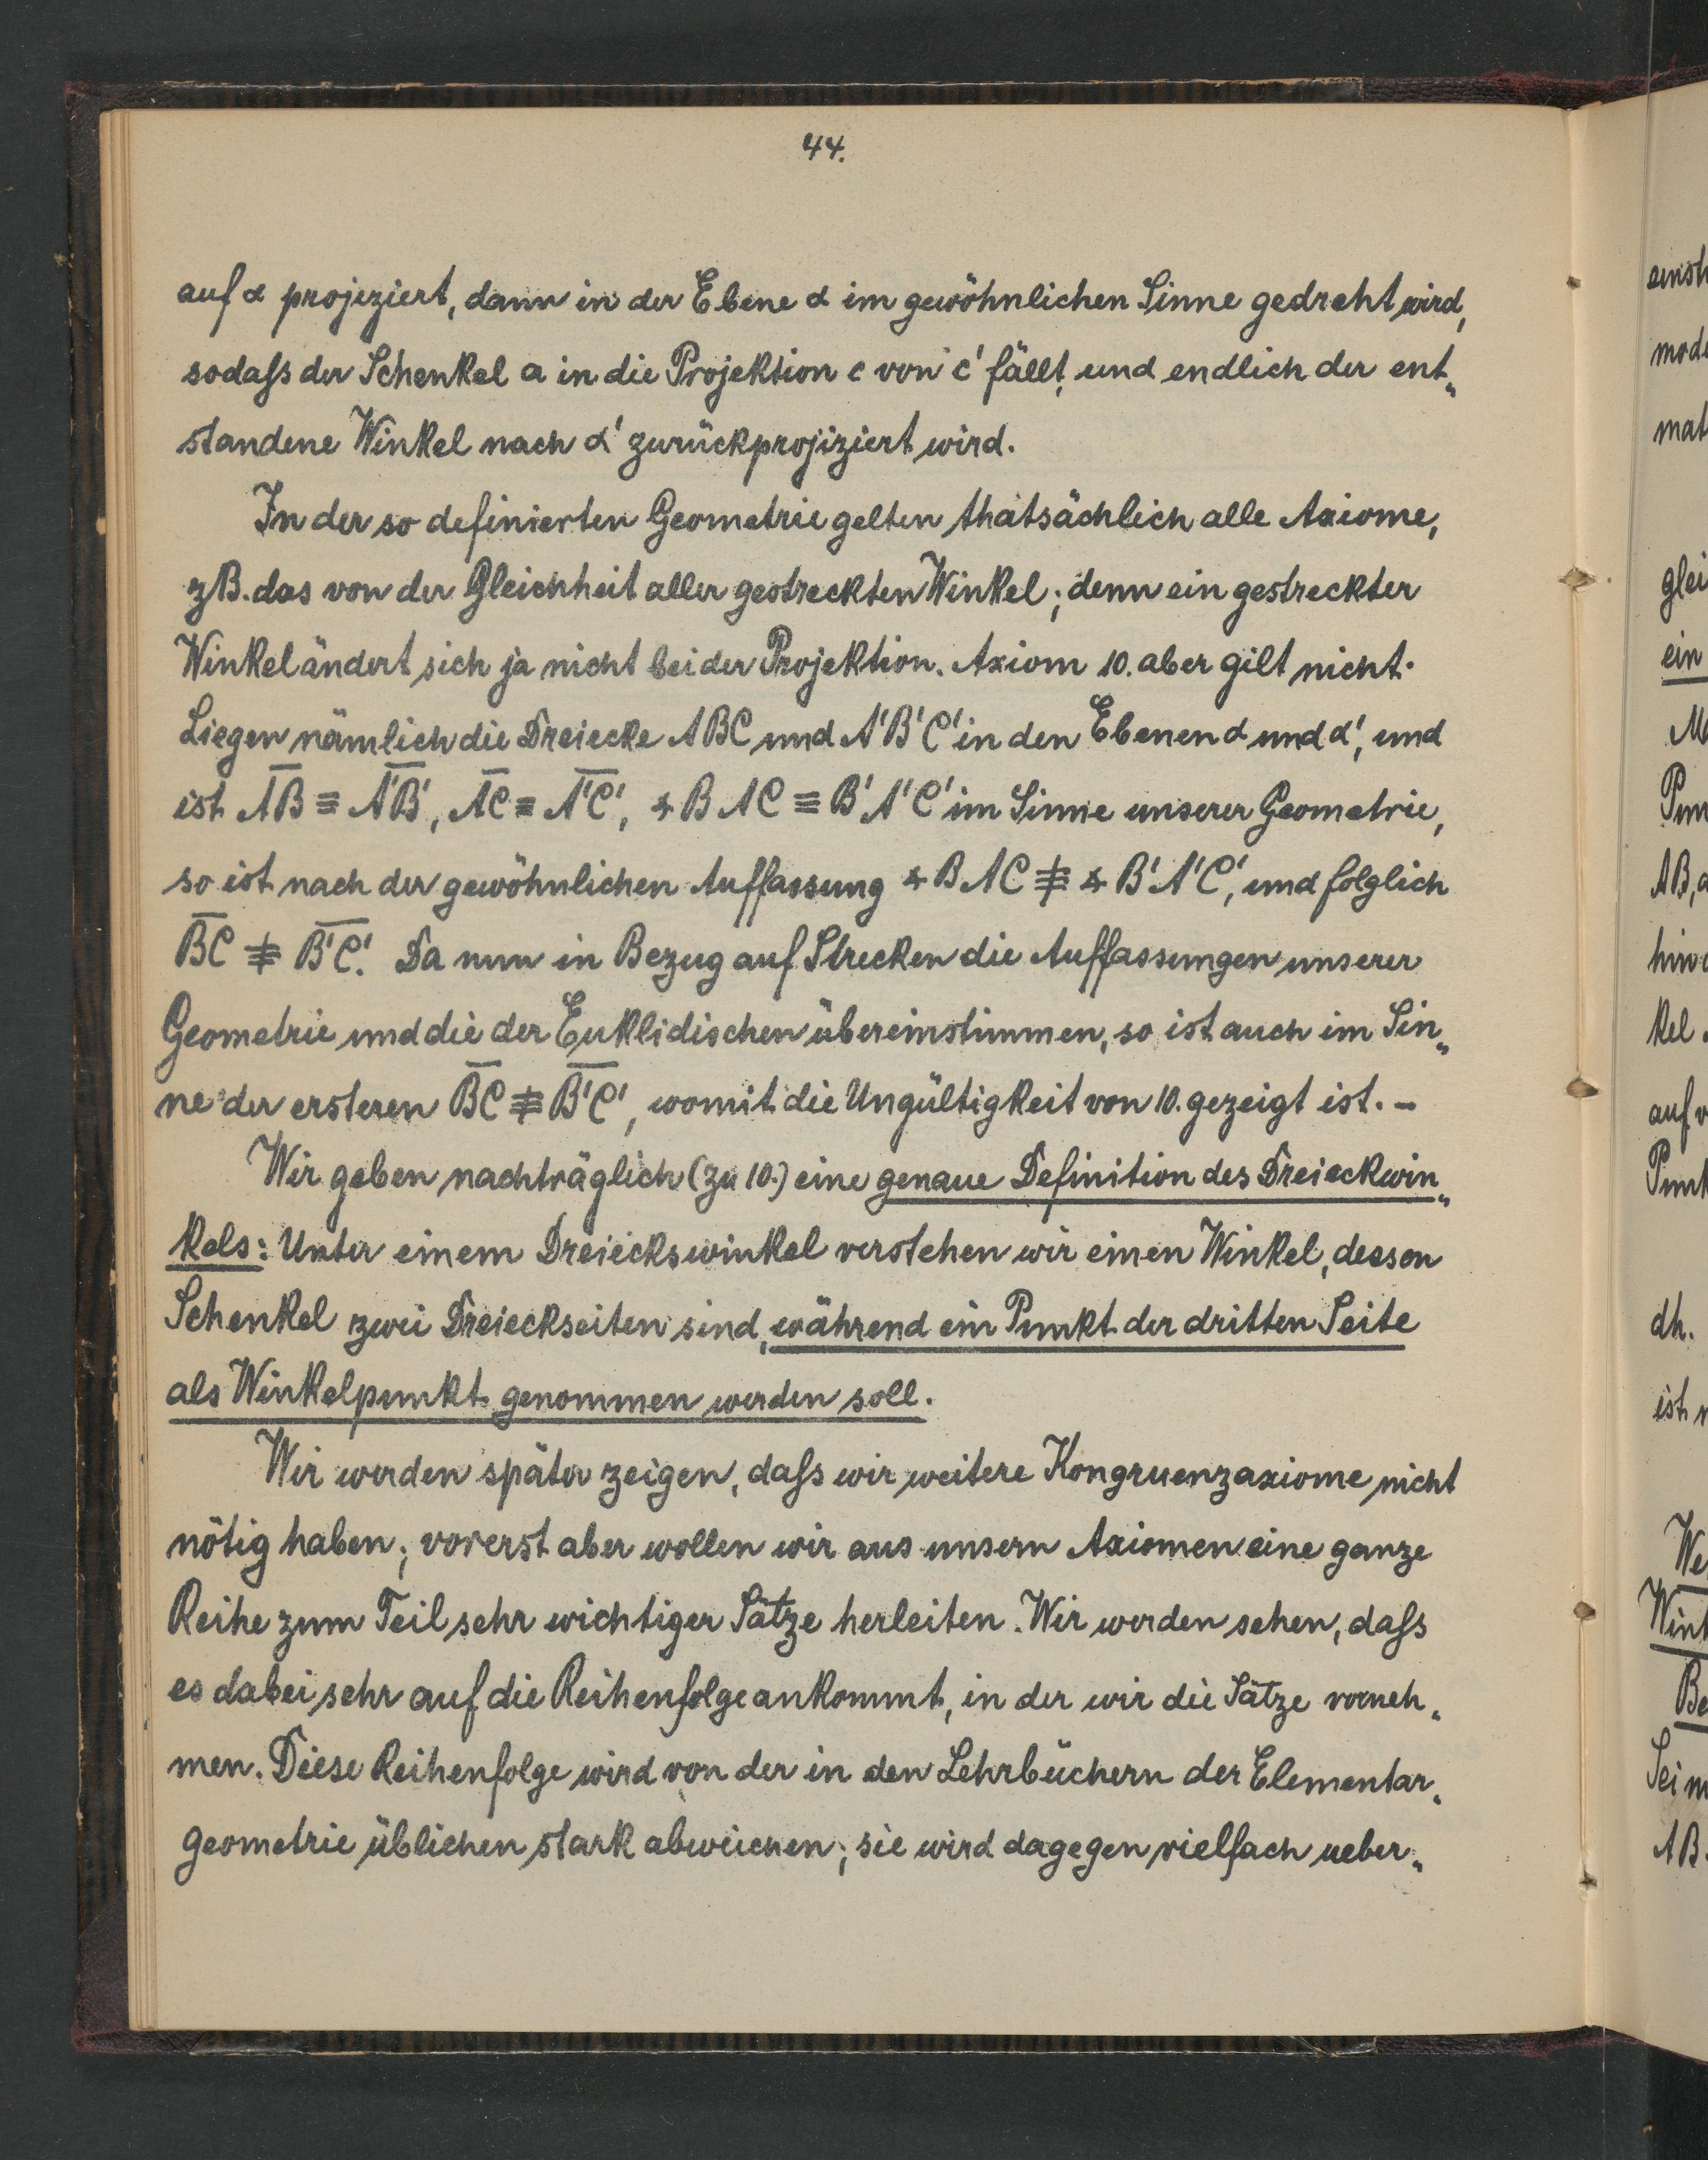 44.
auf α projeziert, dann in der Ebene α im gewöhnlichen Sinne gedreht wird,
sodaſs der Schenkel a in die Projektion c von c' fällt, und endlich der ent„
standene Winkel nach α' zurückprojiziert wird.
In der so definierten Geometrie gelten thatsächlich alle Axiome,
z B. das von der Gleichheit aller gestreckten Winkel; denn ein gestreckter
Winkel ändert sich ja nicht bei der Projektion. Axiom 10. aber gilt nicht.
Liegen nämlich die Dreiecke ABC und A'B'C' in den Ebenen α und α', und
ist A̅B̅ ≡ A̅'B̅', A̅C̅ ≡ A̅'C̅', ∢ BAC ≡ B'A'C' im Sinne unserer Geometrie,
so ist nach der gewöhnlichen Auffassung ∢ BAC ≢ ∢ B'A'C', und folglich
B̅C̅ ≢ B̅'C̅'. Da nun in Bezug auf Strecken die Auffassungen unserer
Geometrie und die der Euklidischen übereinstimmen, so ist auch im Sin„
ne der ersteren B̅C̅ ≢ B̅'C̅', womit die Ungültigkeit von 10. gezeigt ist. –
Wir geben nachträglich (zu 10.) eine genaue Definition des Dreieckwin„
kels: Unter einem Dreieckswinkel verstehen wir einen Winkel, dessen
Schenkel zwei Dreieckseiten sind, während ein Punkt der dritten Seite
als Winkelpunkt genommen werden soll.
Wir werden später zeigen, daſs wir weitere Kongruenzaxiome nicht
nötig haben; vorerst aber wollen wir aus unsern Axiomen eine ganze
Reihe zum Teil sehr wichtiger Sätze herleiten. Wir werden sehen, daſs
es dabei sehr auf die Reihenfolge ankommt, in der wir die Sätze vorneh„
men. Diese Reihenfolge wird von der in den Lehrbüchern der Elementar„
geometrie üblichen stark abweichen; sie wird dagegen vielfach ueber„